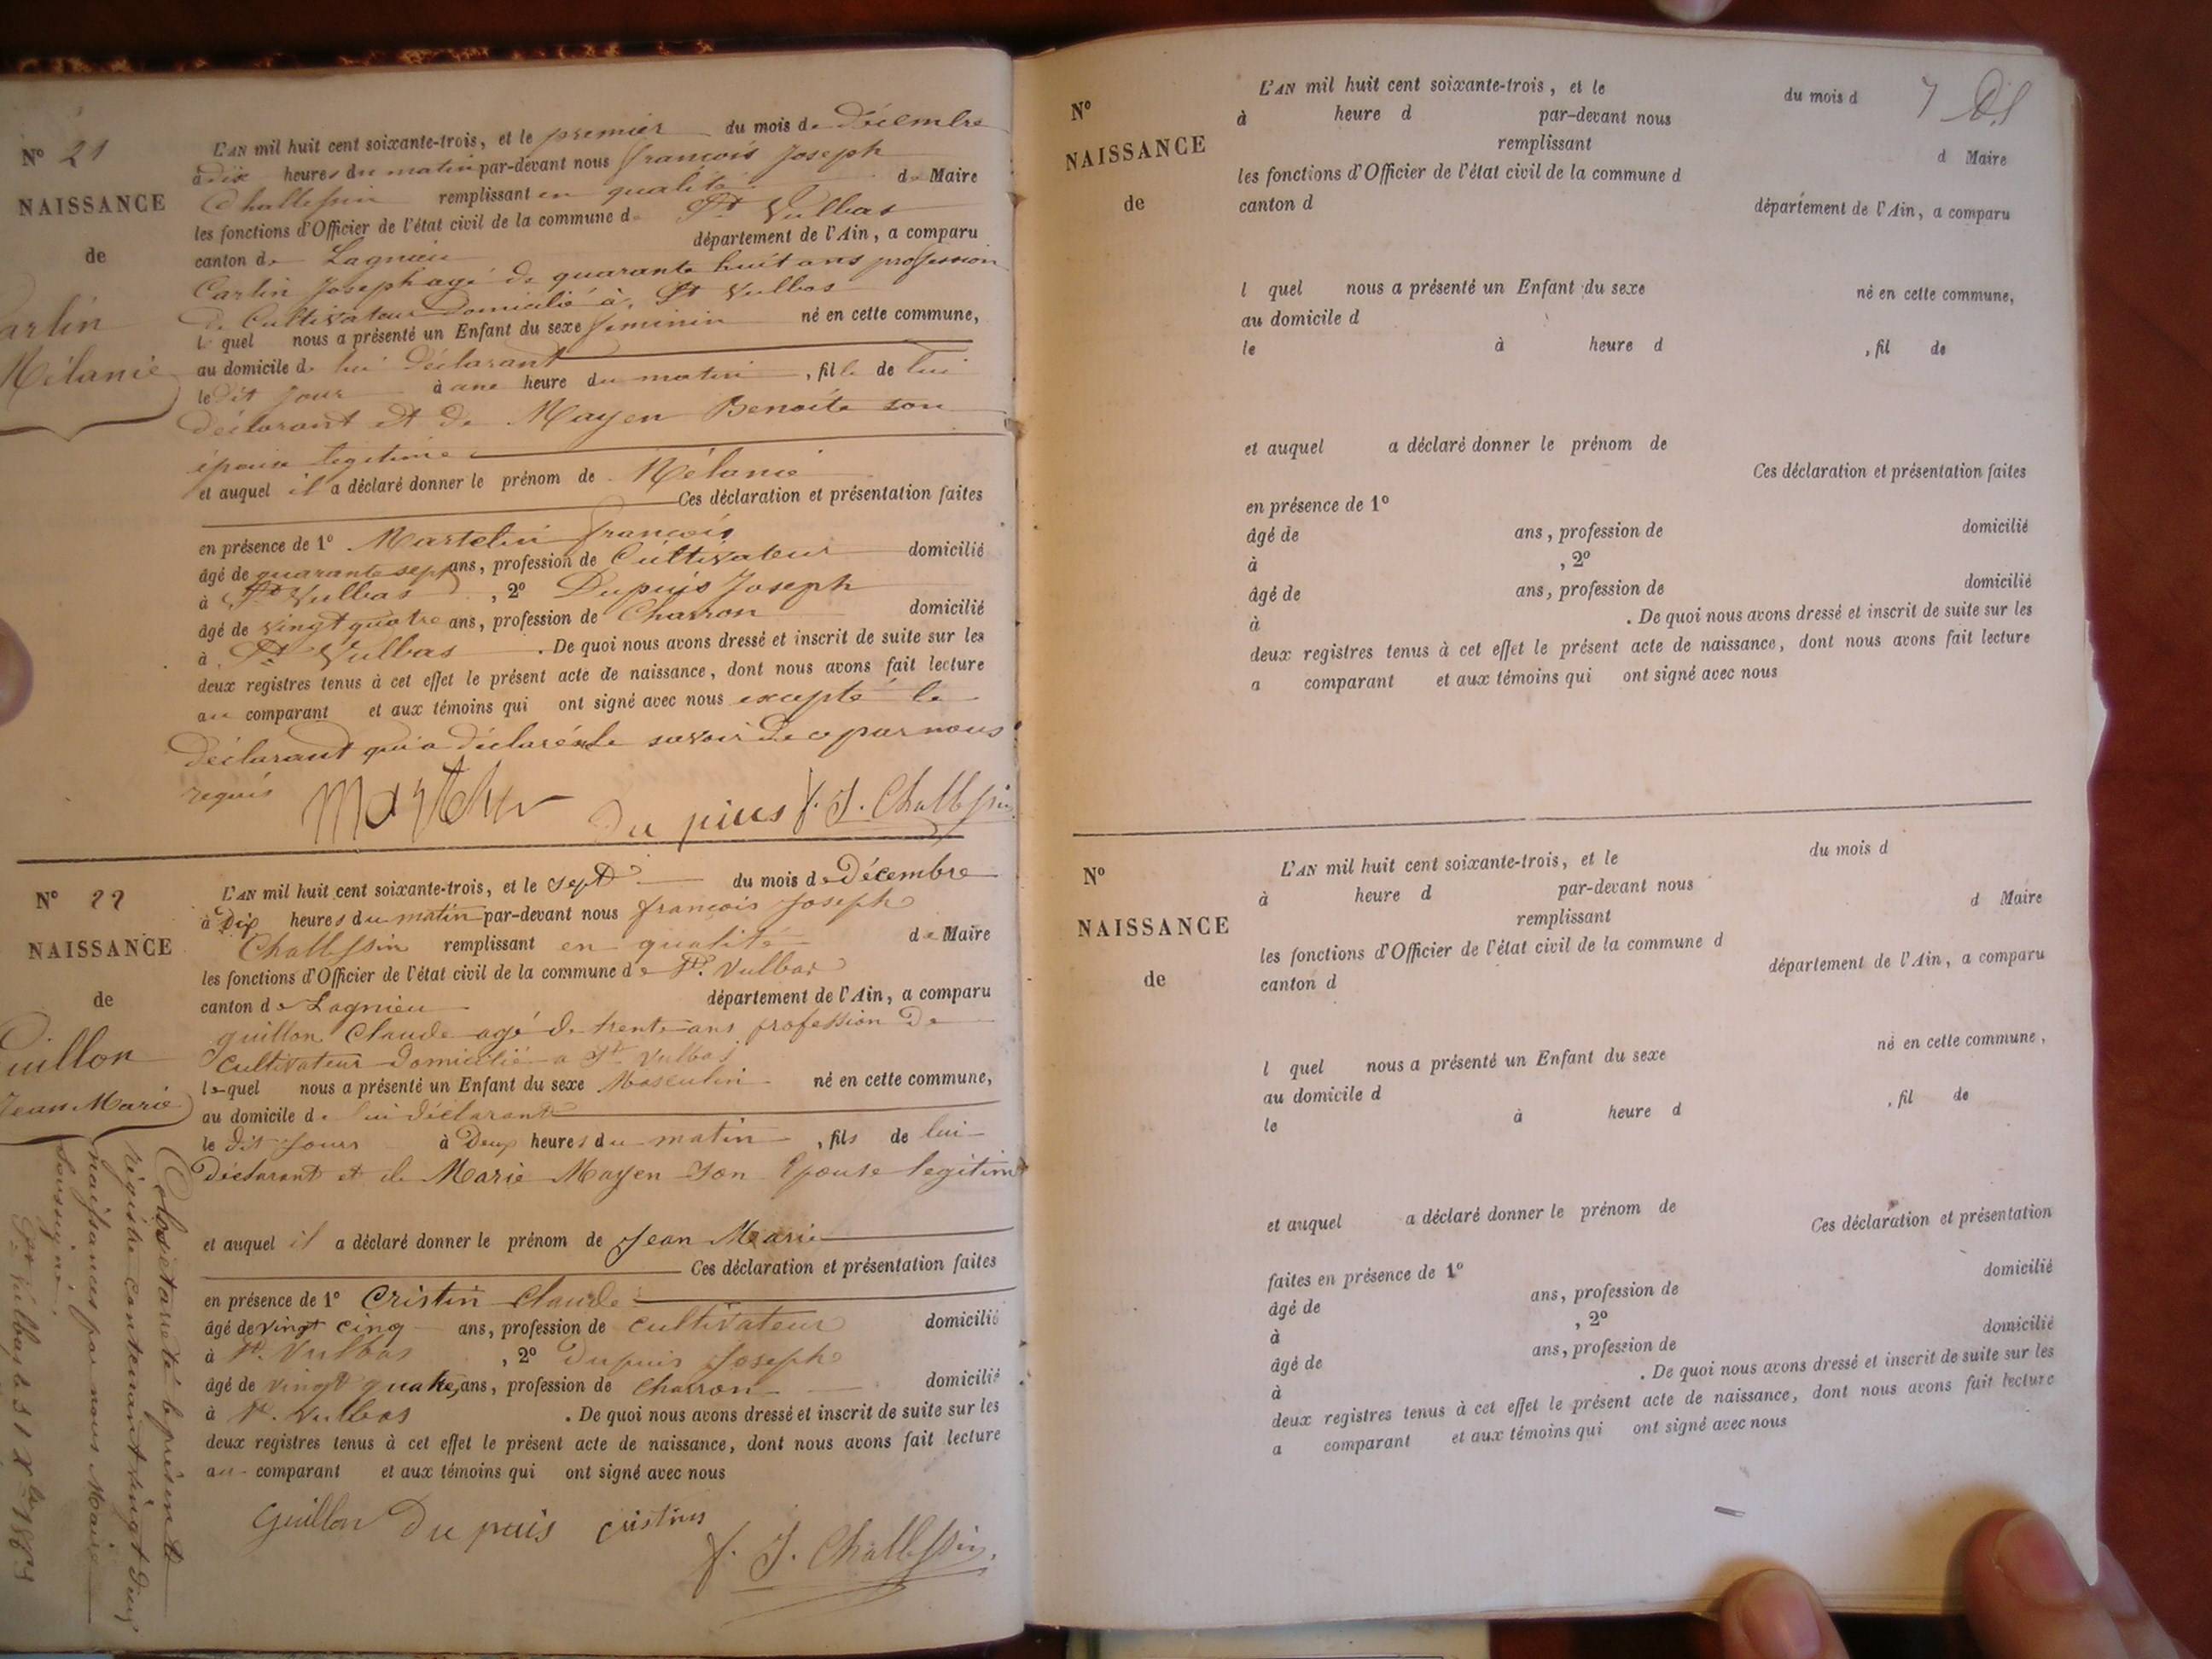 N° 21
NAISSANCE
de
arlin
Mélanie
L'AN mil huit cent soixante-trois, et le premier du mois de Décembre
à dix heures du matin par-devant nous françois Joseph
Challessin remplissant en qualité de Maire
les fonctions d'Officier de l'état civil de la commune de St Vulbas
canton de Lagnieu département de l'Ain, a comparu
Carlin Joseph agé de quarante huit ans profession
de Cultivateur Domicilié à St Vulbas
l quel nous a présenté un Enfant du sexe féminin né en cette commune,
au domicile de lui déclarant
le dit jour à une heure du matin, fille de lui
déclarant et de Mayen Benoite son
épouse legitime
et auquel il a déclaré donner le prénom de Mélanie
Ces déclaration et présentation faites
en présence de 1° Martelin françois
âgé de quarante sept ans, profession de Cultivateur domicilié
à St Vulbas, 2° Dupuis Joseph
âgé de vingt quatre ans, profession de Charron domicilié
à St Vulbas. De quoi nous avons dressé et inscrit de suite sur les
deux registres tenus à cet effet le présent acte de naissance, dont nous avons fait lecture
au comparant et aux témoins qui ont signé avec nous excepté le
déclarant qui a déclaré ne le savoir de ce par nous
requis
Du puis f. J. Challessin
N° 22
NAISSANCE
de
uillon
Jean Marie
L'AN mil huit cent soixante-trois, et le sept du mois de Décembre
à Dix heures du matin par-devant nous françois Joseph
Challessin remplissant en qualité de Maire
les fonctions d'Officier de l'état civil de la commune de St. Vulbas
canton de Lagnieu département de l'Ain, a comparu
guillon Claude agé de trente ans profession De
Cultivateur Domicilié a St Vulbas
lequel nous a présenté un Enfant du sexe Masculin né en cette commune,
au domicile de lui déclarant
le dit jour à Deux heures du matin, fils de lui
Déclarant et de Marie Mayen son Epouse legitim
et auquel il a déclaré donner le prénom de Jean Marie
Ces déclaration et présentation faites
en présence de 1° Cristin Claude
âgé de vingt cinq ans, profession de cultivateur domicilié
à St. Vulbas, 2° Dupuis Joseph
âgé de vingt quatre ans, profession de Charron domicilié
à St. Vulbas. De quoi nous avons dressé et inscrit de suite sur les
deux registres tenus à cet effet le présent acte de naissance, dont nous avons fait lecture
au comparant et aux témoins qui ont signé avec nous
Guillon Du puis cristin
f. J. Challessin
Clos et arreté le présent
régistre contenant vingt deux
naissances par nous Maire
soussigné.
St Vulbas le 31 Xbre 1863
7
N°
NAISSANCE
de
L'AN mil huit cent soixante-trois, et le du mois d
à heure d par-devant nous
remplissant d Maire
les fonctions d'Officier de l'état civil de la commune d
canton d département de l'Ain, a comparu
l quel nous a présenté un Enfant du sexe né en cette commune,
au domicile d
le à heure d , fil de
et auquel a déclaré donner le prénom de
Ces déclaration et présentation faites
en présence de 1°
âgé de ans, profession de domicilié
à , 2°
âgé de ans, profession de domicilié
à . De quoi nous avons dressé et inscrit de suite sur les
deux registres tenus à cet effet le présent acte de naissance, dont nous avons fait lecture
a comparant et aux témoins qui ont signé avec nous
N°
NAISSANCE
de
L'AN mil huit cent soixante-trois, et le du mois d
à heure d par-devant nous
remplissant d Maire
les fonctions d'Officier de l'état civil de la commune d
canton d département de l'Ain, a comparu
l quel nous a présenté un Enfant du sexe né en cette commune,
au domicile d
le à heure d , fil de
et auquel a déclaré donner le prénom de
Ces déclaration et présentation
faites en présence de 1°
âgé de ans, profession de domicilié
à , 2°
âgé de ans, profession de domicilié
à . De quoi nous avons dressé et inscrit de suite sur les
deux registres tenus à cet effet le présent acte de naissance, dont nous avons fait lecture
a comparant et aux témoins qui ont signé avec nous